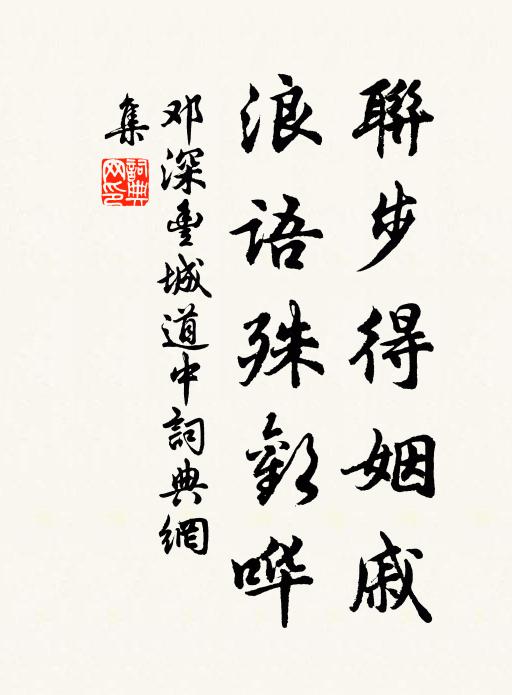 聯步得姻戚
浪語殊歡哗
邓深豊城道中詞典網
集
詞典网印